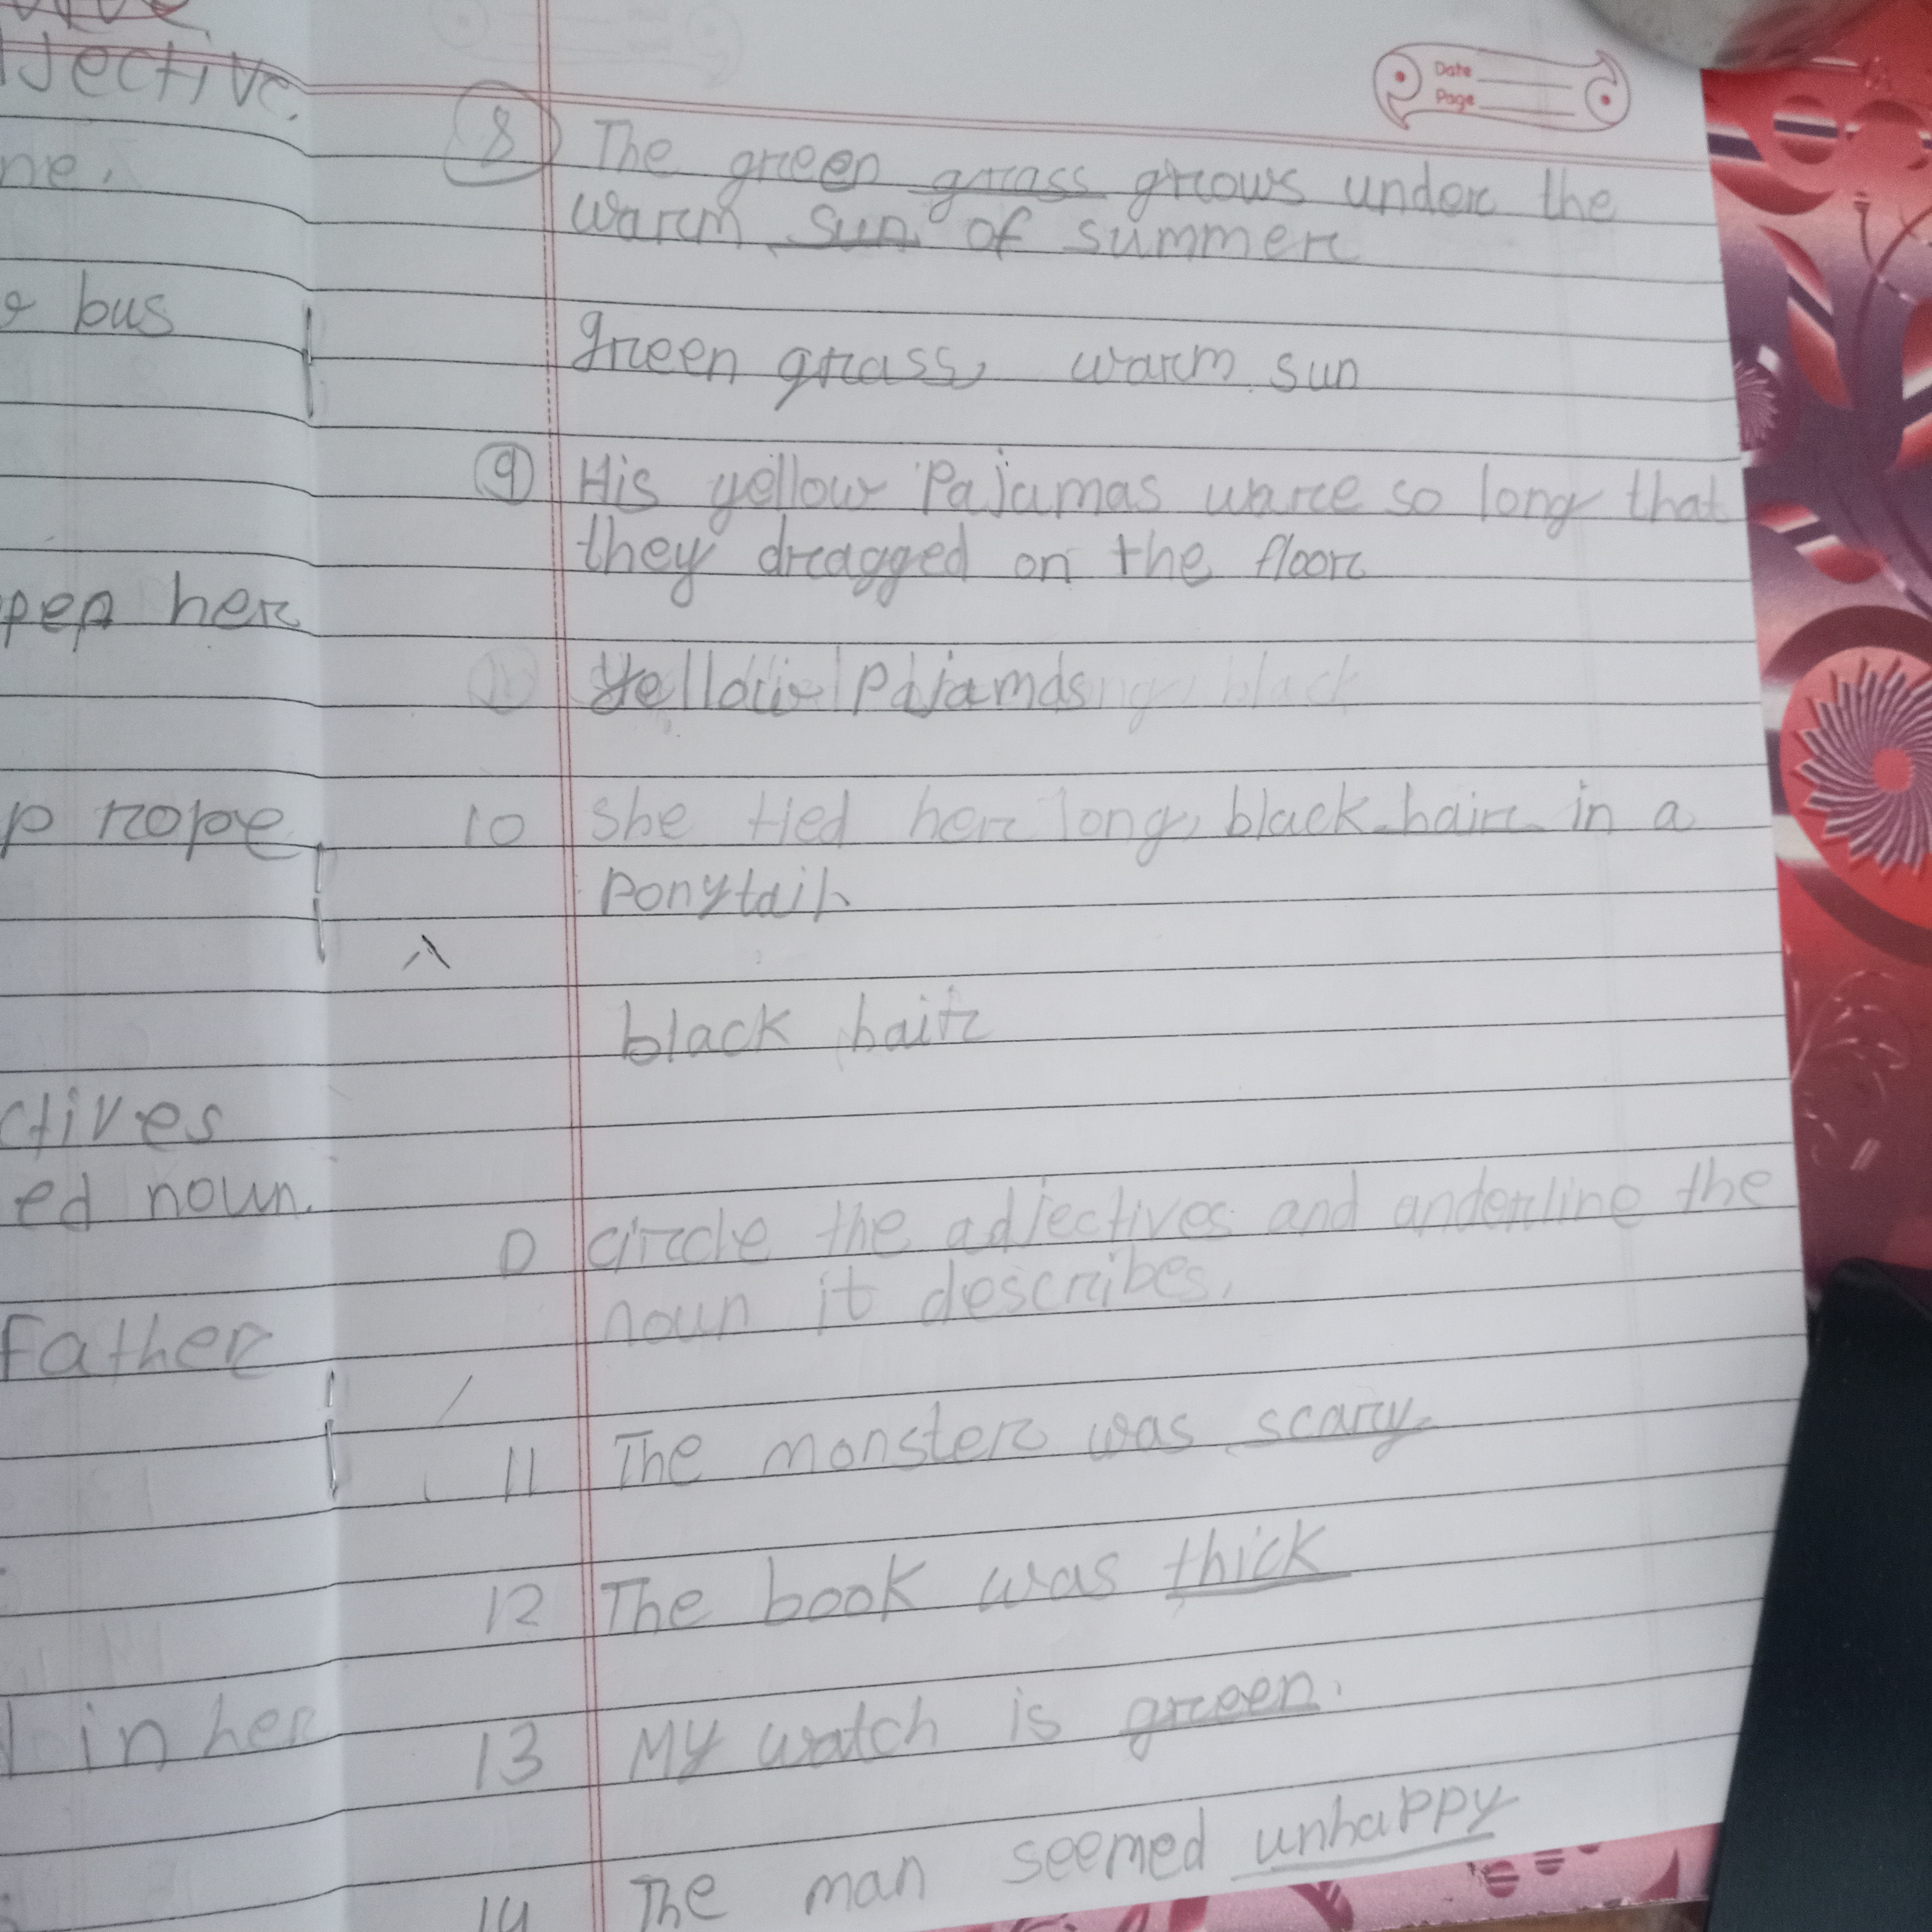 jective.
ne.
bus
pen her
p rope
ctives
ed noun.
Father
in her
Date
Page
8 The green grass grows under the
warm sun of summer
green grass, warm sun
9 His yellow Pajamas ware so long that
they dragged on the floor
yellow Pajamas
black
10 she tied her long, black hair in a
ponytail
black hair
D circle the adjectives and anderline the
noun it describes.
11 The monster was scary
12 The book was thick
13 My watch is green.
14 The man seemed unhappy